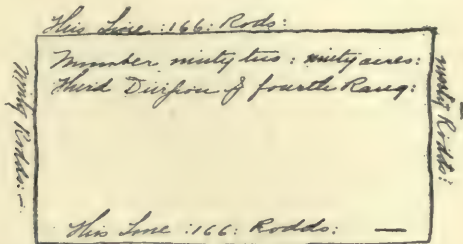 This Line :166: Rods:
Number ninty two : ninty acres:
Third Division of fourth Rang:
ninty Rodds: —
ninty Rodds:
This Line :166: Rodds: —